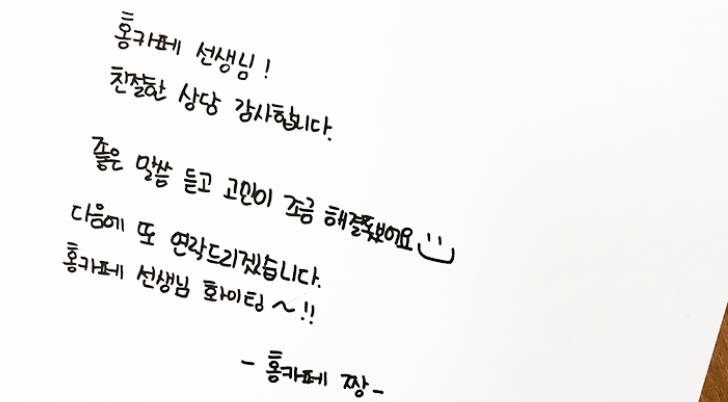 홍카페 선생님!
친절한 상담 감사합니다.
좋은 말씀 듣고 고민이 조금
다음에 또 연락드리겠습니다.
홍카페 선생님 화이팅~!!
- 홍카페 짱 -